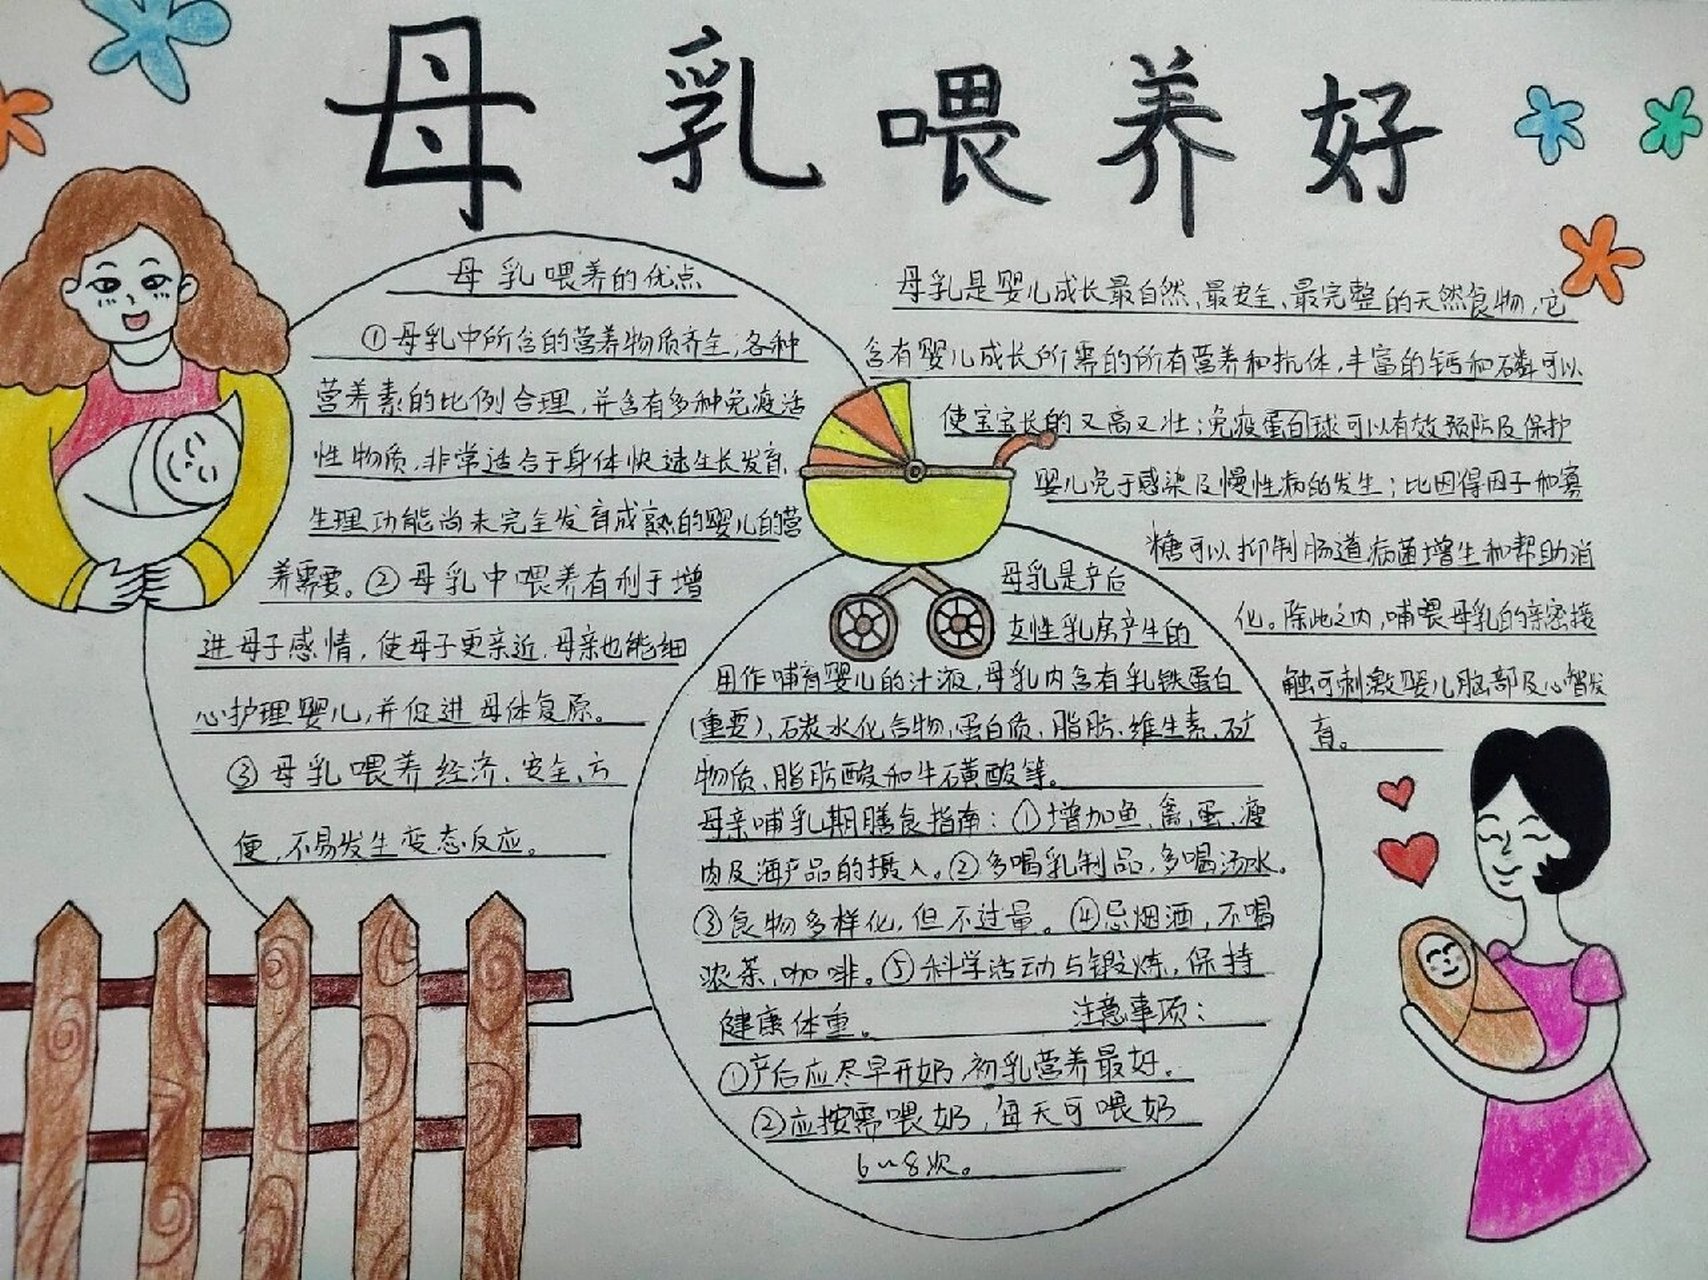 母乳喂养好
母乳喂养的优点
①母乳中所含的营养物质齐全,各种
营养素的比例合理,并含有多种免疫活
性物质,非常适合于身体快速生长发育、
生理功能尚未完全发育成熟的婴儿的营
养需要。②母乳中喂养有利于增
进母子感情,使母子更亲近,母亲也能细
心护理婴儿,并促进母体复原。
③母乳喂养经济、安全、方
便,不易发生变态反应。
母乳是婴儿成长最自然、最安全、最完整的天然食物,它
含有婴儿成长所需的所有营养和抗体,丰富的钙和磷可以
使宝宝长的又高又壮;免疫蛋白球可以有效预防及保护
婴儿免于感染及慢性病的发生;比因得因子和寡
糖可以抑制肠道病菌增生和帮助消
化。除此之内,哺喂母乳的亲密接
触可刺激婴儿脑部及心智发
育。
母乳是产后
女性乳房产生的
用作哺育婴儿的汁液,母乳内含有乳铁蛋白
(重要)、石炭水化合物、蛋白质、脂肪、维生素、矿
物质、脂肪酸和牛磺酸等。
母亲哺乳期膳食指南:①增加鱼、禽、蛋、瘦
肉及海产品的摄入。②多喝乳制品,多喝汤水。
③食物多样化,但不过量。④忌烟酒,不喝
浓茶、咖啡。⑤科学活动与锻炼,保持
健康体重。 注意事项:
①产后应尽早开奶,初乳营养最好。
②应按需喂奶,每天可喂奶
6~8次。